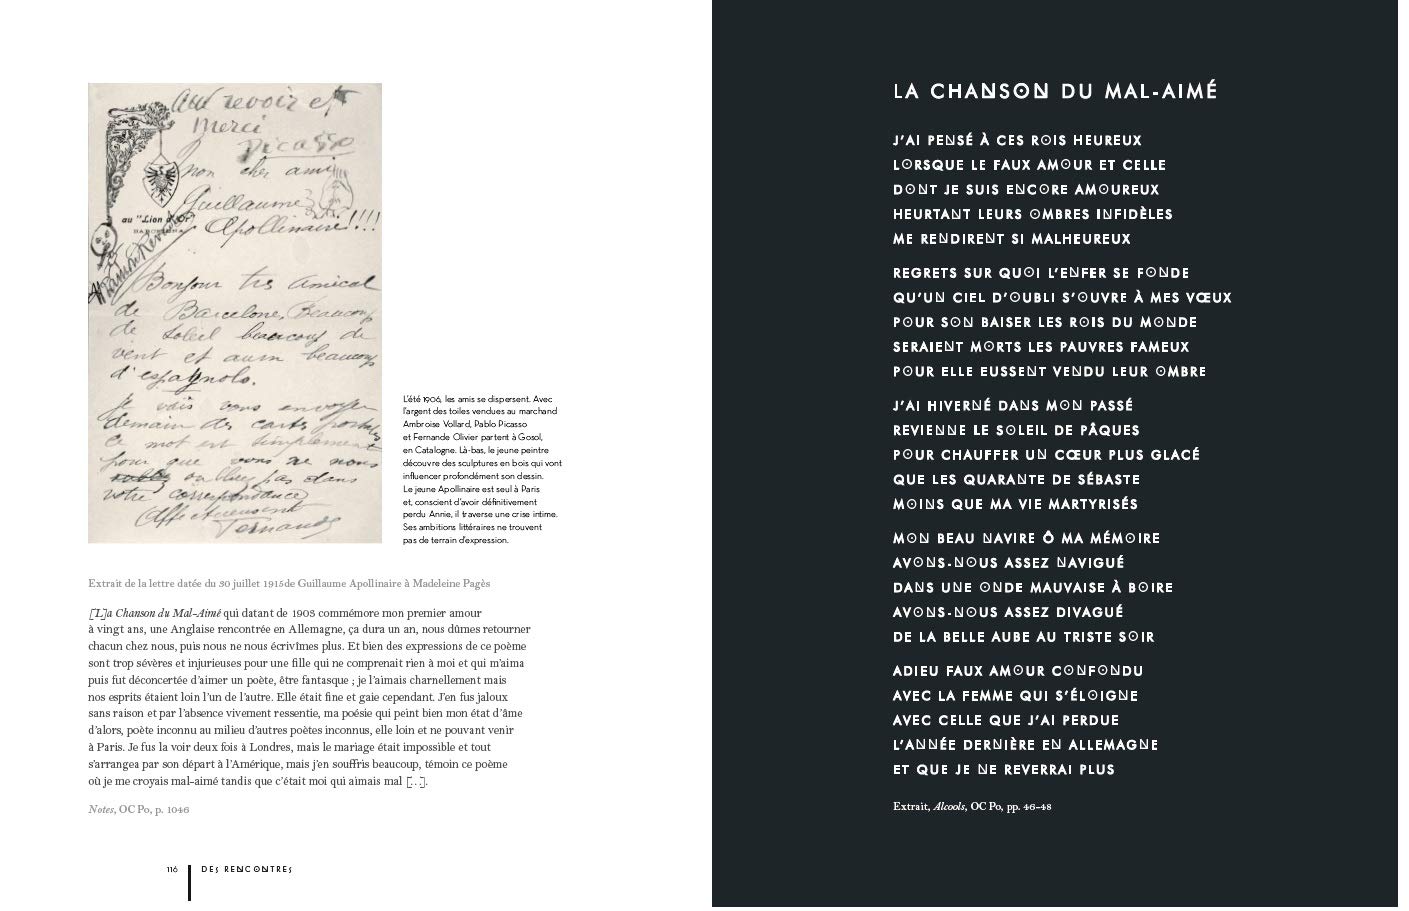 Au revoir et
Merci
Picasso
mon cher ami
Guillaume
Apollinaire!!!!
au "Lion d'Or"
BARCELONA
Ramon Reventos
Bonjour tres amical
de Barcelone, Beaucoup
de soleil beaucoup de
vent et aussi beaucoup
d'espagnols.
Je vais vous envoyer
demain des cartes postales
ce mot est simplement
pour que vous ne nous
oubliez pas dans
votre correspondance
Affectueusement
Fernande
L'été 1906, les amis se dispersent. Avec
l'argent des toiles vendues au marchand
Ambroise Vollard, Pablo Picasso
et Fernande Olivier partent à Gosol,
en Catalogne. Là-bas, le jeune peintre
découvre des sculptures en bois qui vont
influencer profondément son dessin.
Le jeune Apollinaire est seul à Paris
et, conscient d'avoir définitivement
perdu Annie, il traverse une crise intime.
Ses ambitions littéraires ne trouvent
pas de terrain d'expression.
Extrait de la lettre datée du 30 juillet 1915de Guillaume Apollinaire à Madeleine Pagès
[L]a Chanson du Mal-Aimé qui datant de 1903 commémore mon premier amour
à vingt ans, une Anglaise rencontrée en Allemagne, ça dura un an, nous dûmes retourner
chacun chez nous, puis nous ne nous écrivîmes plus. Et bien des expressions de ce poème
sont trop sévères et injurieuses pour une fille qui ne comprenait rien à moi et qui m'aima
puis fut déconcertée d'aimer un poète, être fantasque ; je l'aimais charnellement mais
nos esprits étaient loin l'un de l'autre. Elle était fine et gaie cependant. J'en fus jaloux
sans raison et par l'absence vivement ressentie, ma poésie qui peint bien mon état d'âme
d'alors, poète inconnu au milieu d'autres poètes inconnus, elle loin et ne pouvant venir
à Paris. Je fus la voir deux fois à Londres, mais le mariage était impossible et tout
s'arrangea par son départ à l'Amérique, mais j'en souffris beaucoup, témoin ce poème
où je me croyais mal-aimé tandis que c'était moi qui aimais mal [...].
Notes, OC Po, p. 1046
116 DES RENCONTRES
LA CHANSON DU MAL-AIMÉ
J'AI PENSÉ À CES ROIS HEUREUX
LORSQUE LE FAUX AMOUR ET CELLE
DONT JE SUIS ENCORE AMOUREUX
HEURTANT LEURS OMBRES INFIDÈLES
ME RENDIRENT SI MALHEUREUX
REGRETS SUR QUOI L'ENFER SE FONDE
QU'UN CIEL D'OUBLI S'OUVRE À MES VŒUX
POUR SON BAISER LES ROIS DU MONDE
SERAIENT MORTS LES PAUVRES FAMEUX
POUR ELLE EUSSENT VENDU LEUR OMBRE
J'AI HIVERNÉ DANS MON PASSÉ
REVIENNE LE SOLEIL DE PÂQUES
POUR CHAUFFER UN CŒUR PLUS GLACÉ
QUE LES QUARANTE DE SÉBASTE
MOINS QUE MA VIE MARTYRISÉS
MON BEAU NAVIRE Ô MA MÉMOIRE
AVONS-NOUS ASSEZ NAVIGUÉ
DANS UNE ONDE MAUVAISE À BOIRE
AVONS-NOUS ASSEZ DIVAGUÉ
DE LA BELLE AUBE AU TRISTE SOIR
ADIEU FAUX AMOUR CONFONDU
AVEC LA FEMME QUI S'ÉLOIGNE
AVEC CELLE QUE J'AI PERDUE
L'ANNÉE DERNIÈRE EN ALLEMAGNE
ET QUE JE NE REVERRAI PLUS
Extrait, Alcools, OC Po, pp. 46-48